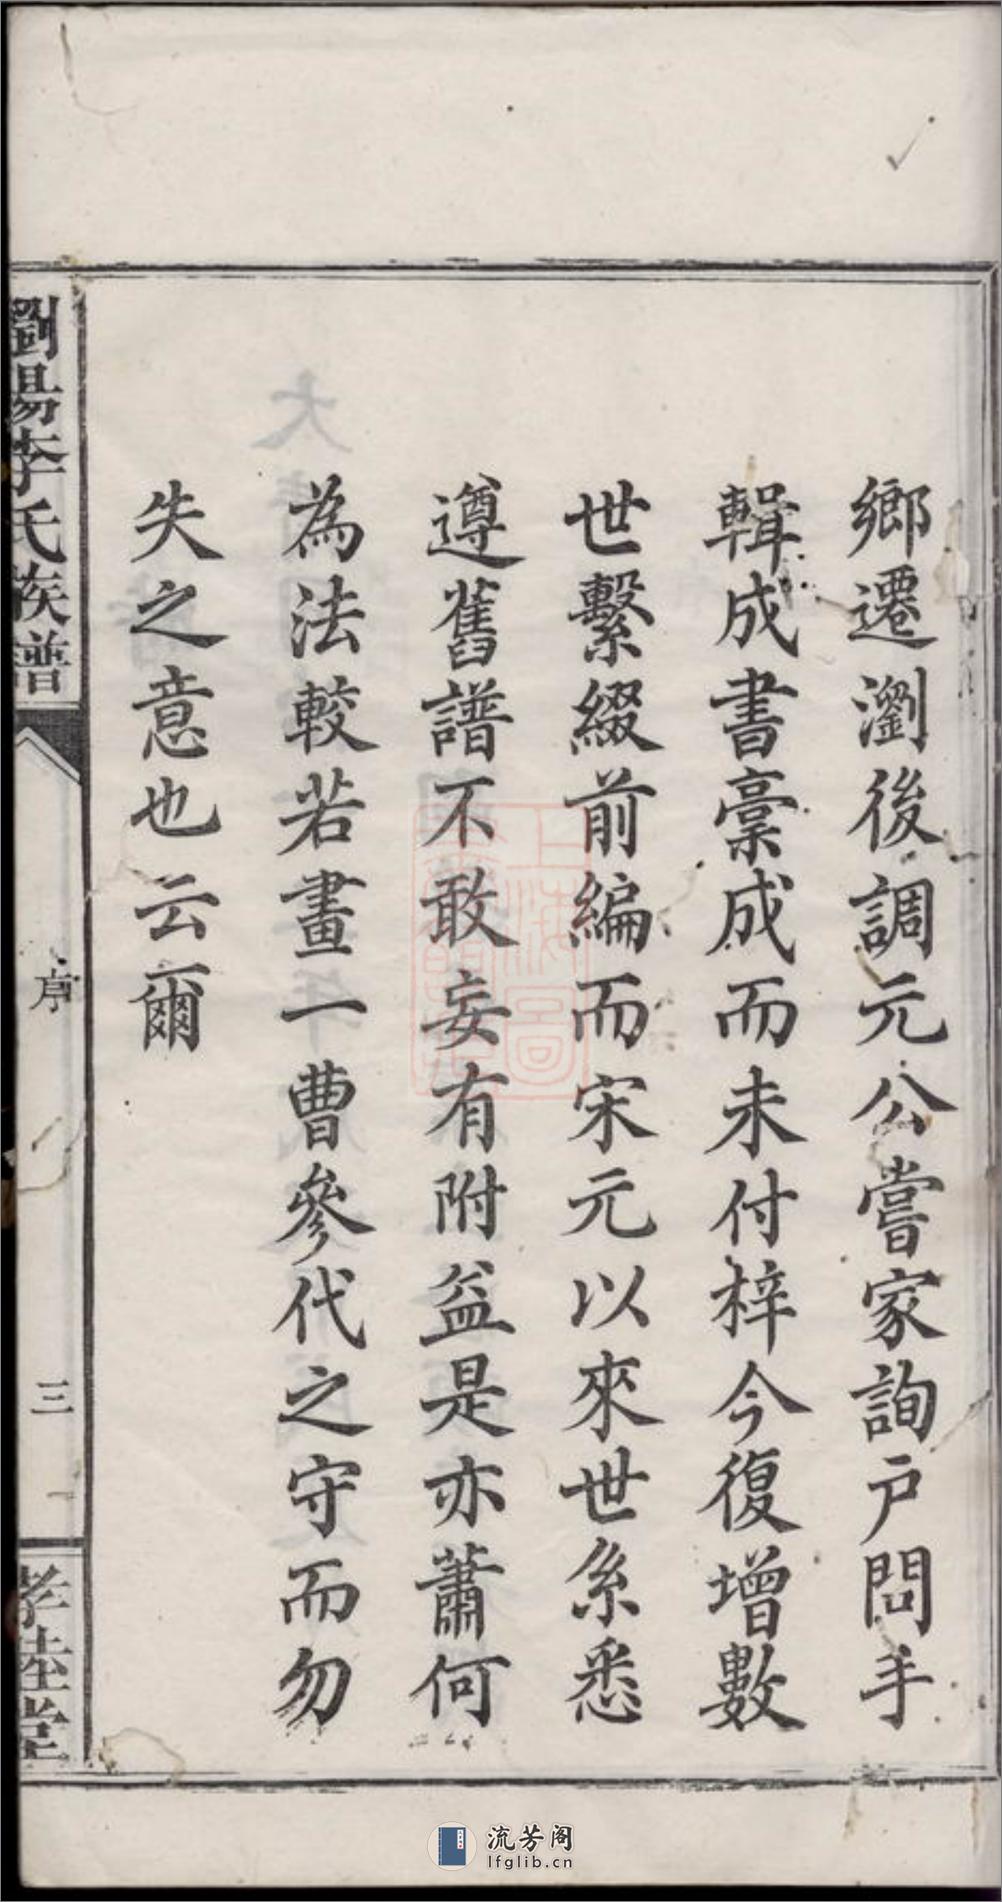 鄉遷瀏後調元公嘗家詢戶問手
輯成書稾成而未付梓今復增數
世繫綴前編而宋元以來世系悉
遵舊譜不敢妄有附益是亦蕭何
為法較若畫一曹參代之守而勿
失之意也云爾
瀏陽李氏族譜
序
三
孝睦堂
流芳阁
lfglib.cn